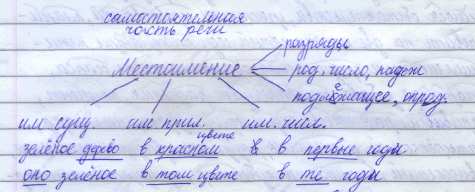 самостоятельная
часть речи
разряды
Местоимение
род, число, падеж
подлежащее, опред.
им. сущ. им. прил. им. числ.
цвете
зелёное дерево в красном в первые годы
оно зелёное в том цвете в те годы